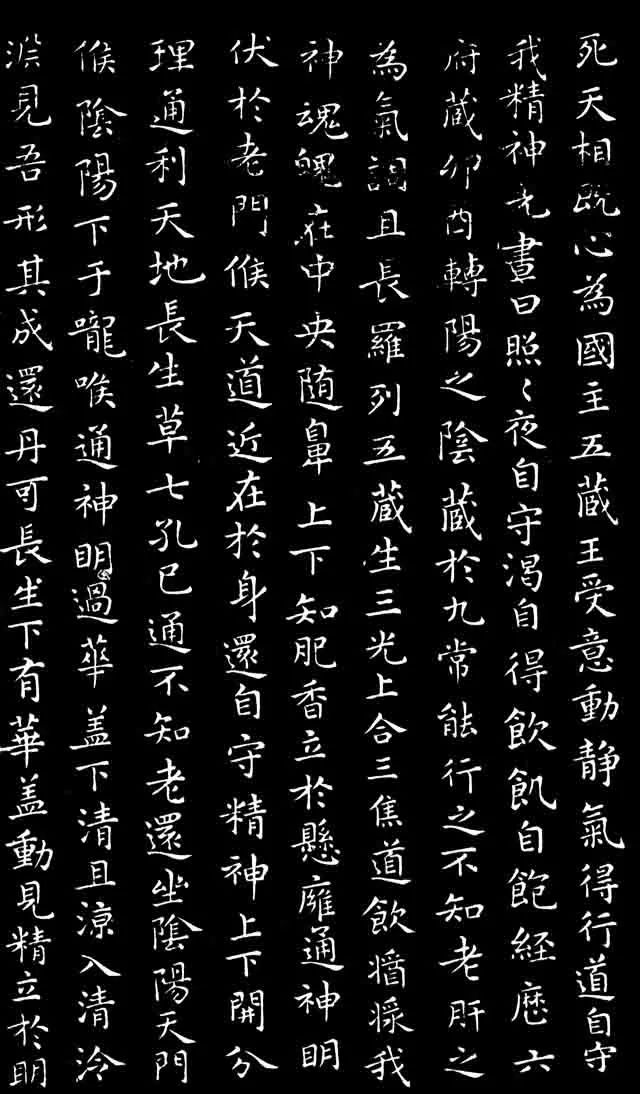 死天相既心為國主五蔵王受意動静氣得行道自守
我精神光晝日照〻夜自守渴自得飲飢自飽経歷六
府蔵卯酉轉陽之陰藏於九常能行之不知老肝之
為氣調且長羅列五蔵生三光上合三焦道飲㵙漿我
神魂魄在中央随鼻上下知肥香立於懸廱通神明
伏於老門候天道近在於身還自守精神上下開分
理通利天地長生草七孔已通不知老還坐陰陽天門
候陰陽下于嚨喉通神明過華盖下清且涼入清泠
淵見吾形其成還丹可長生下有華盖動見精立於明